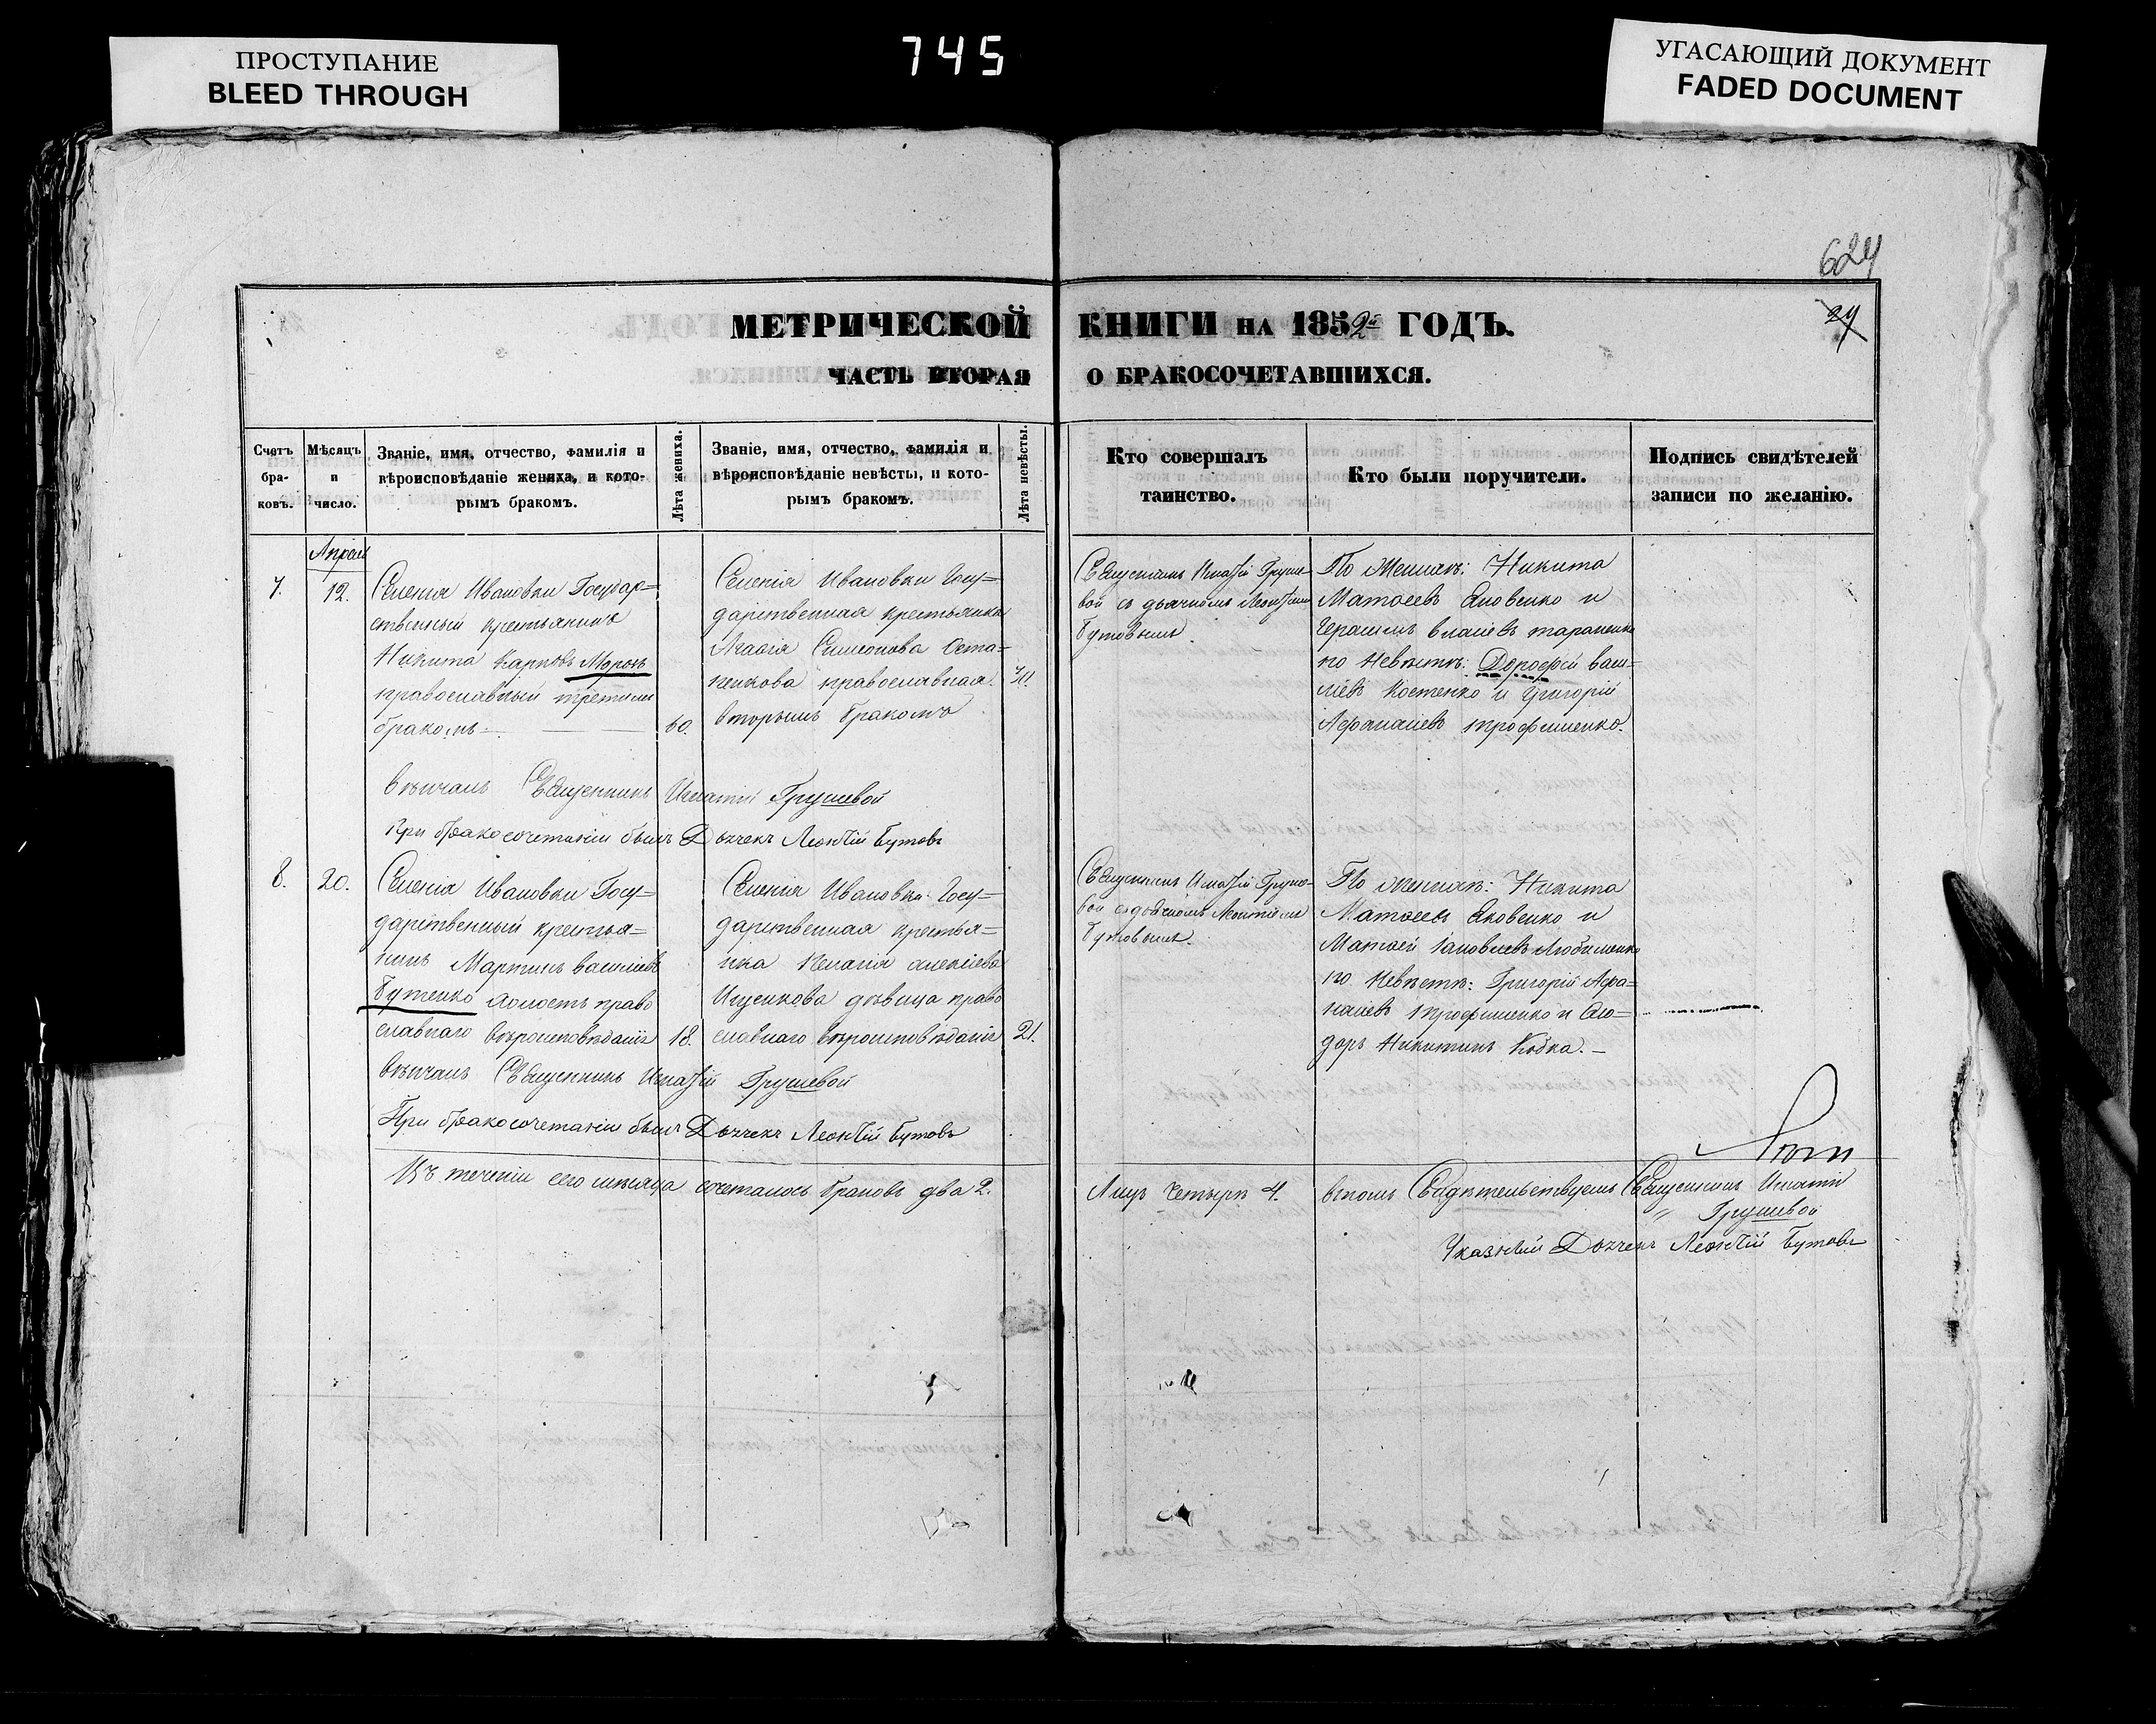 ПРОСТУПАНИЕ
BLEED THROUGH
745
УГАСАЮЩИЙ ДОКУМЕНТ
FADED DOCUMENT
624
24
МЕТРИЧЕСКОЙ КНИГИ НА 1852й ГОДЪ.
ЧАСТЬ ВТОРАЯ О БРАКОСОЧЕТАВШИХСЯ.
Счетъ
бра-
ковъ.
Мѣсяцъ
и
число.
Званіе, имя, отчество, фамилія и
вѣроисповѣданіе жениха, и кото-
рымъ бракомъ.
Лѣта жениха.
Званіе, имя, отчество, фамилія и
вѣроисповѣданіе невѣсты, и кото-
рымъ бракомъ.
Лѣта невѣсты.
Кто совершалъ
таинство.
Кто были поручители.
Подпись свидѣтелей
записи по желанію.
Апреля
7.
12.
Селенія Ивановки Государ=
ственный крестьянинъ
Никита Карповъ Моронъ
православный третьимъ
бракомъ
60.
Селенія Ивановки Госу=
дарственная крестьянка
Агафія Симеонова Оста=
пенкова православная
вторымъ бракомъ
40.
Священникъ Игнатій Груше-
вой съ дьячкомъ Леонтіем
Бутовымъ.
По Женихѣ: Никита
Матфеевъ Яковенко и
Герасимъ Власіевъ Тараненко
по Невѣстѣ: Дорофей Васи=
ліевъ Костенко и Григорій
Афанасіевъ Трофименко.
вѣнчалъ Священникъ Игнатій Грушевой
При бракосочетаніи былъ Дьячекъ Леонтій Бутовъ
8.
20.
Селенія Ивановки Госу=
дарственный крестья=
нинъ Мартинъ Василіевъ
Бутенко холостъ право
славнаго вѣроисповѣданія
18.
Селенія Ивановки Госу=
дарственная крестья=
нка Пелагія Алексіева
дѣвица право
славнаго вѣроисповѣданія
21.
Священникъ Игнатій Груше-
вой съ дьячкомъ Леонтіем
Бутовымъ.
По Женихѣ: Никита
Матфеевъ Яковенко и
Матфей
по Невѣстѣ: Григорій Афа=
насіевъ Трофименко и Фео=
доръ Никитинъ
вѣнчалъ Священникъ Игнатій Грушевой
При бракосочетаніи былъ Дьячекъ Леонтій Бутовъ
Въ теченіи сего мѣсяца сочеталось браковъ два 2.
Лицъ четыре 4.
вчомъ Свидѣтельствуемъ Священникъ Игнатій
Грушевой
Указный Дьячекъ Леонтій Бутовъ